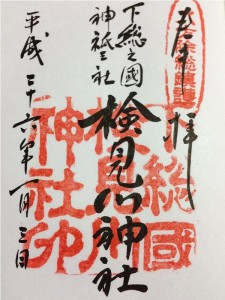 奉拝
検見川神社
下総之國
神祇三社
平成二十六年一月三日
下総國
検見川
神社印